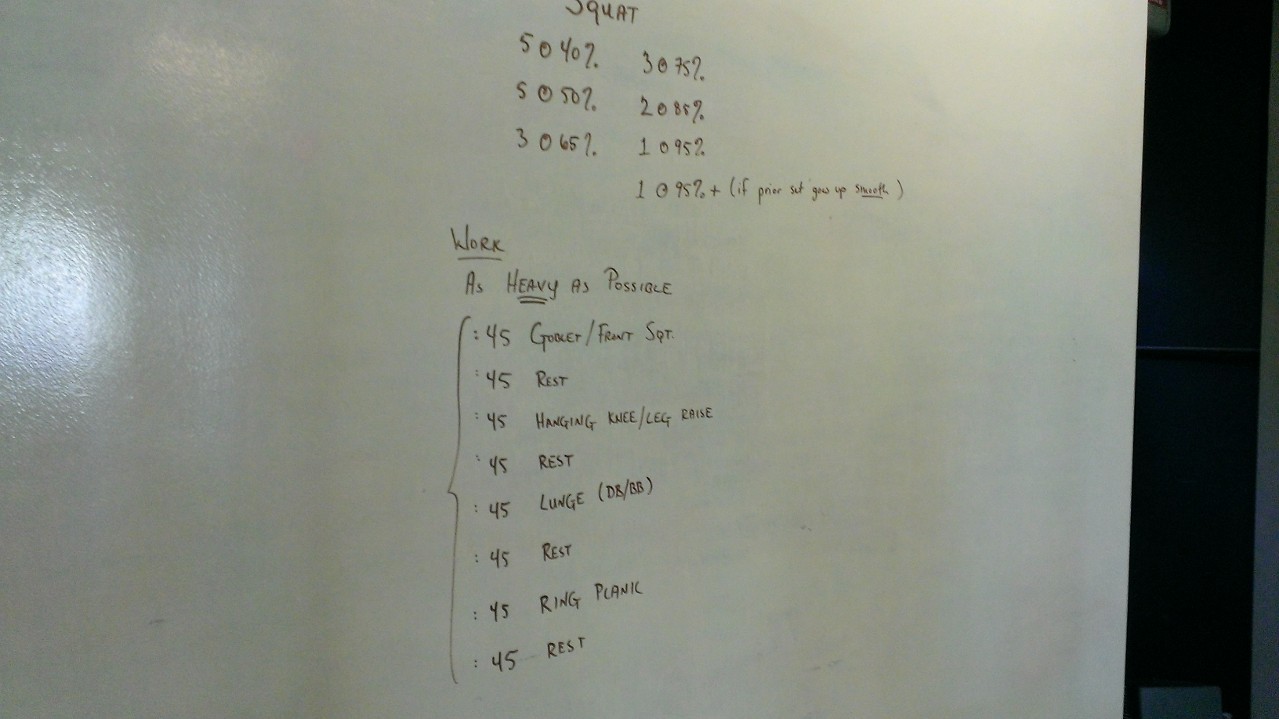 SQUAT
5 @ 40%
5 @ 50%
3 @ 65%
3 @ 75%
2 @ 85%
1 @ 95%
1 @ 95%+ (if prior set goes up smooth)
WORK
AS HEAVY AS POSSIBLE
:45 GOBLET/FRONT SQT.
:45 REST
:45 HANGING KNEE/LEG RAISE
:45 REST
:45 LUNGE (DB/BB)
:45 REST
:45 RING PLANK
:45 REST